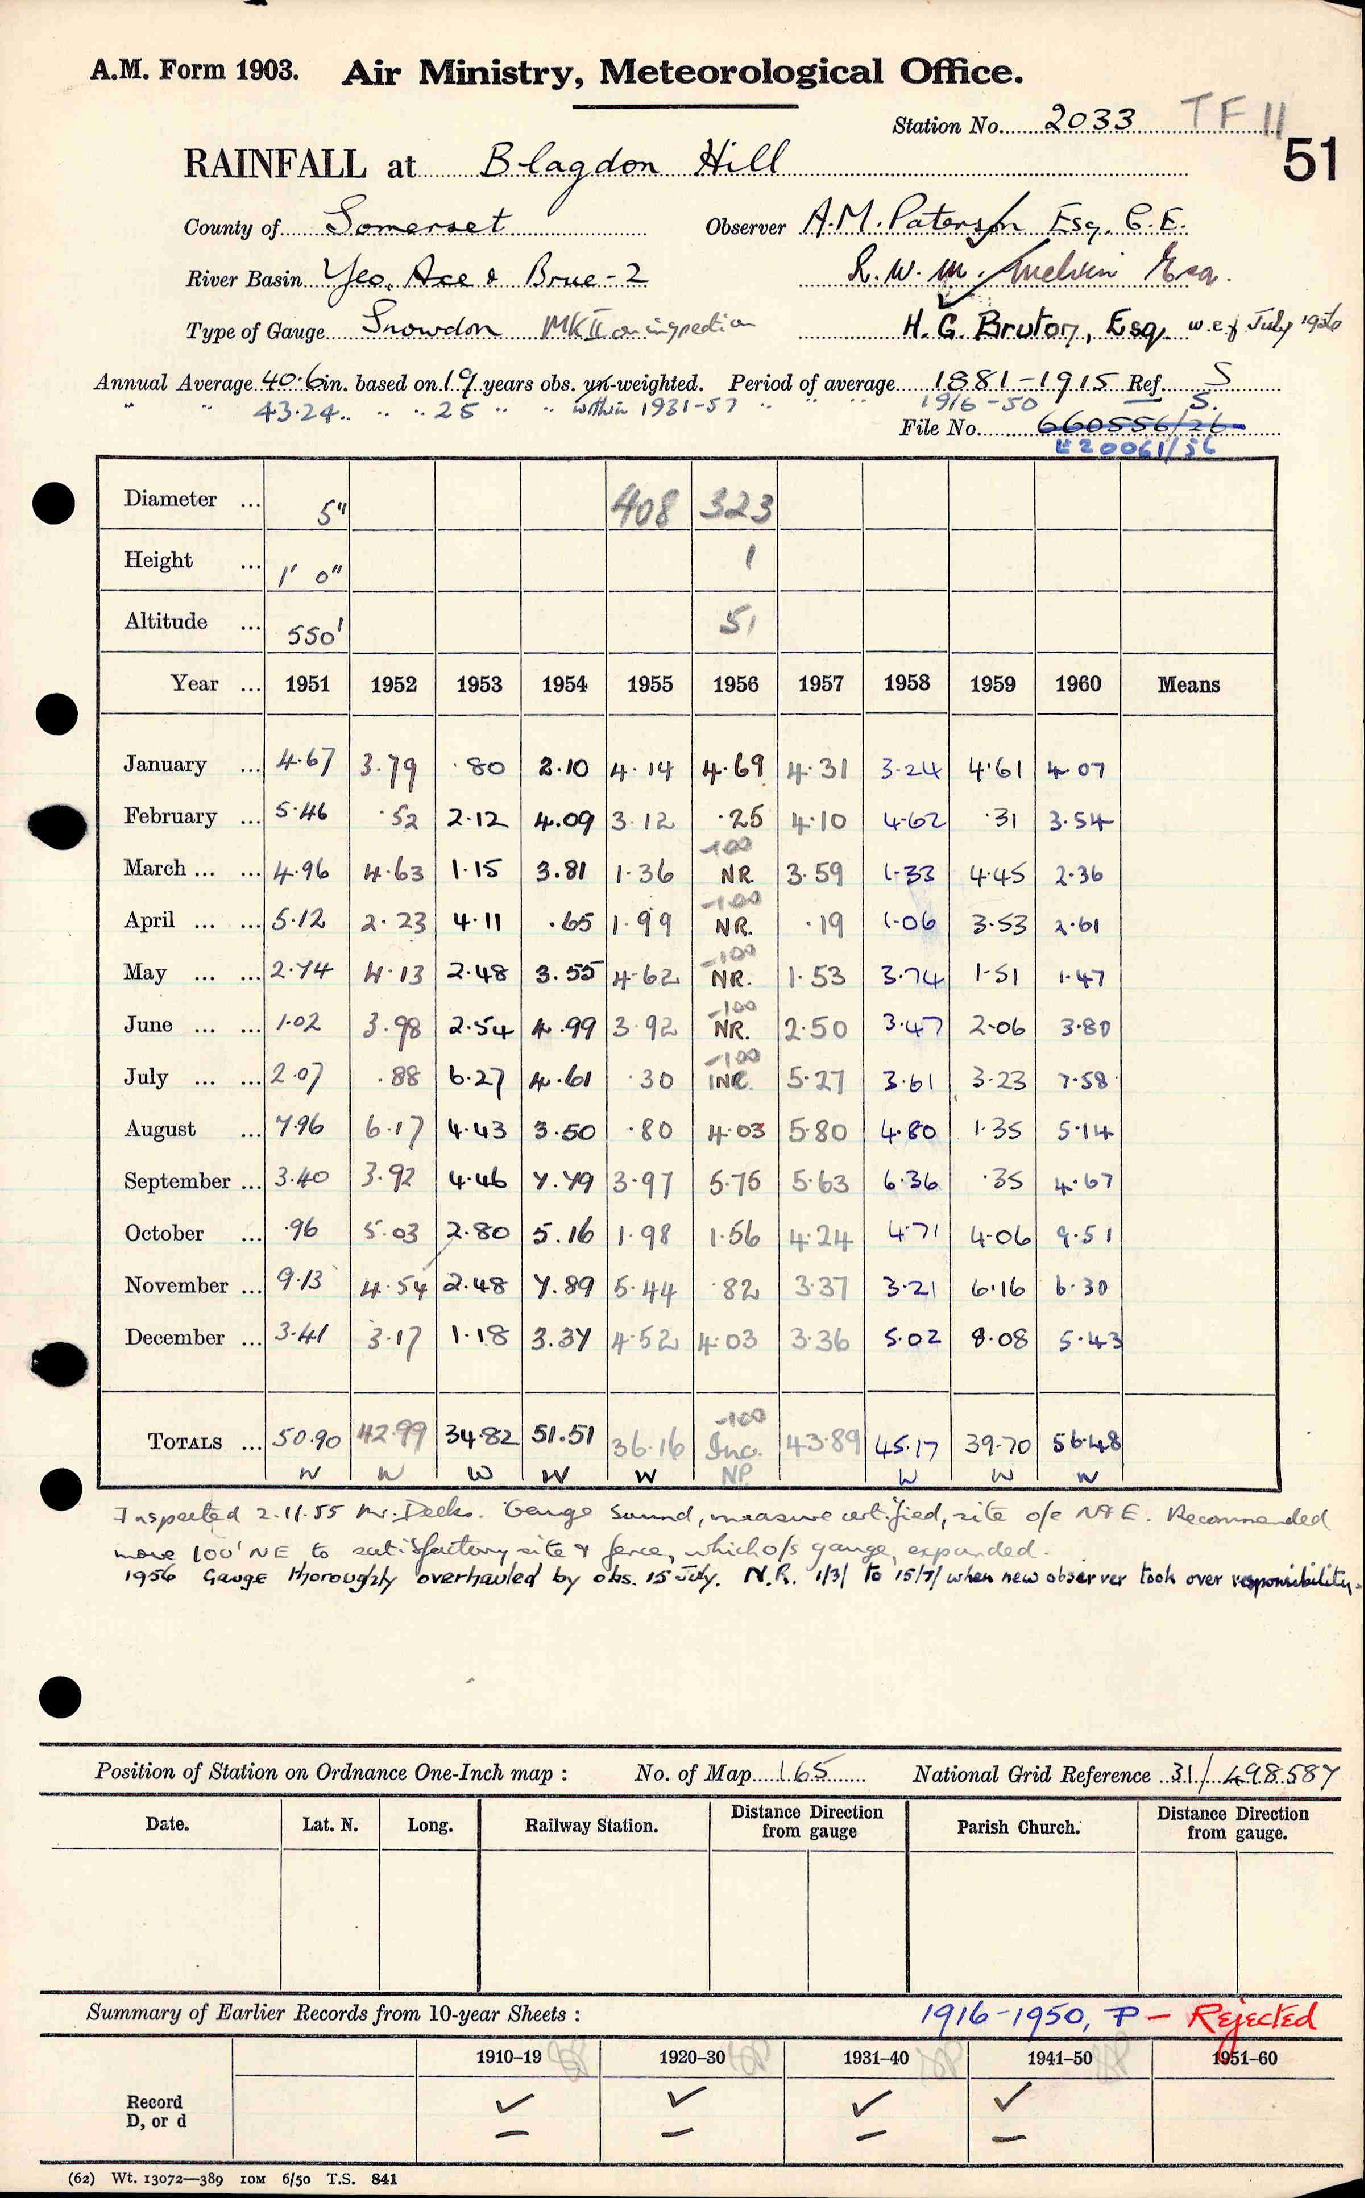 A.M. Form 1903. Air Ministry, Meteorological Office.
Station No. 2033 TF 11
51
RAINFALL at Blagdon Hill
County of Somerset Observer A.M. Paterson Esq. C.E.
River Basin Yeo, Axe & Brue - 2 R.W.M. Melvin Esq.
Type of Gauge Snowdon MK II on inspection H.G. Bruton, Esq. w.e.f July 1956
Annual Average 40.6 in. based on 19 years obs. un-weighted. Period of average 1881-1915 Ref. S
" " 43.24 " " 25 " " within 1931-57 " " " 1916-50 S.
File No. 660556/26
E20061/56
Diameter ... 5" 408 323
Height ... 1' 0" 1
Altitude ... 550' 51
Year ... 1951 1952 1953 1954 1955 1956 1957 1958 1959 1960 Means
January ... 4.67 3.79 .80 2.10 4.14 4.69 4.31 3.24 4.61 4.07
February ... 5.46 .52 2.12 4.09 3.12 .25 4.10 4.62 .31 3.54
March ... ... 4.96 4.63 1.15 3.81 1.36 -100 NR 3.59 1.33 4.45 2.36
April ... ... 5.12 2.23 4.11 .65 1.99 -100 NR. .19 1.06 3.53 2.61
May ... ... 2.74 4.13 2.48 3.55 4.62 -100 NR. 1.53 3.74 1.51 1.47
June ... ... 1.02 3.98 2.54 4.99 3.92 -100 NR. 2.50 3.47 2.06 3.80
July ... ... 2.07 .88 6.27 4.61 .30 -100 INC 5.27 3.61 3.23 7.58
August ... 7.96 6.17 4.43 3.50 .80 4.03 5.80 4.80 1.35 5.14
September ... 3.40 3.92 4.46 7.79 3.97 5.75 5.63 6.36 .35 4.67
October ... .96 5.03 2.80 5.16 1.98 1.56 4.24 4.71 4.06 9.51
November ... 9.13 4.54 2.48 7.89 5.44 .82 3.37 3.21 6.16 6.30
December ... 3.41 3.17 1.18 3.37 4.52 4.03 3.36 5.02 8.08 5.43
TOTALS ... 50.90 42.99 34.82 51.51 36.16 -100 Inc. 43.89 45.17 39.70 56.48
W W W W W NP W W W
Inspected 2.11.55 Mr. Deeks. Gauge sound, measure certified, site o/e N & E. Recommended
move 100' NE to satisfactory site & fence, which o/s gauge, expanded.
1956 Gauge thoroughly overhauled by obs. 15 July. N.R. 1/3/ to 15/7/ when new observer took over responsibility.
Position of Station on Ordnance One-Inch map : No. of Map 165 National Grid Reference 31/498587
Date. Lat. N. Long. Railway Station. Distance Direction from gauge Parish Church. Distance Direction from gauge.
Summary of Earlier Records from 10-year Sheets : 1916-1950, P - Rejected
1910–19 1920–30 1931–40 1941–50 1951–60
Record
D, or d
(62) Wt. 13072—389 10M 6/50 T.S. 841